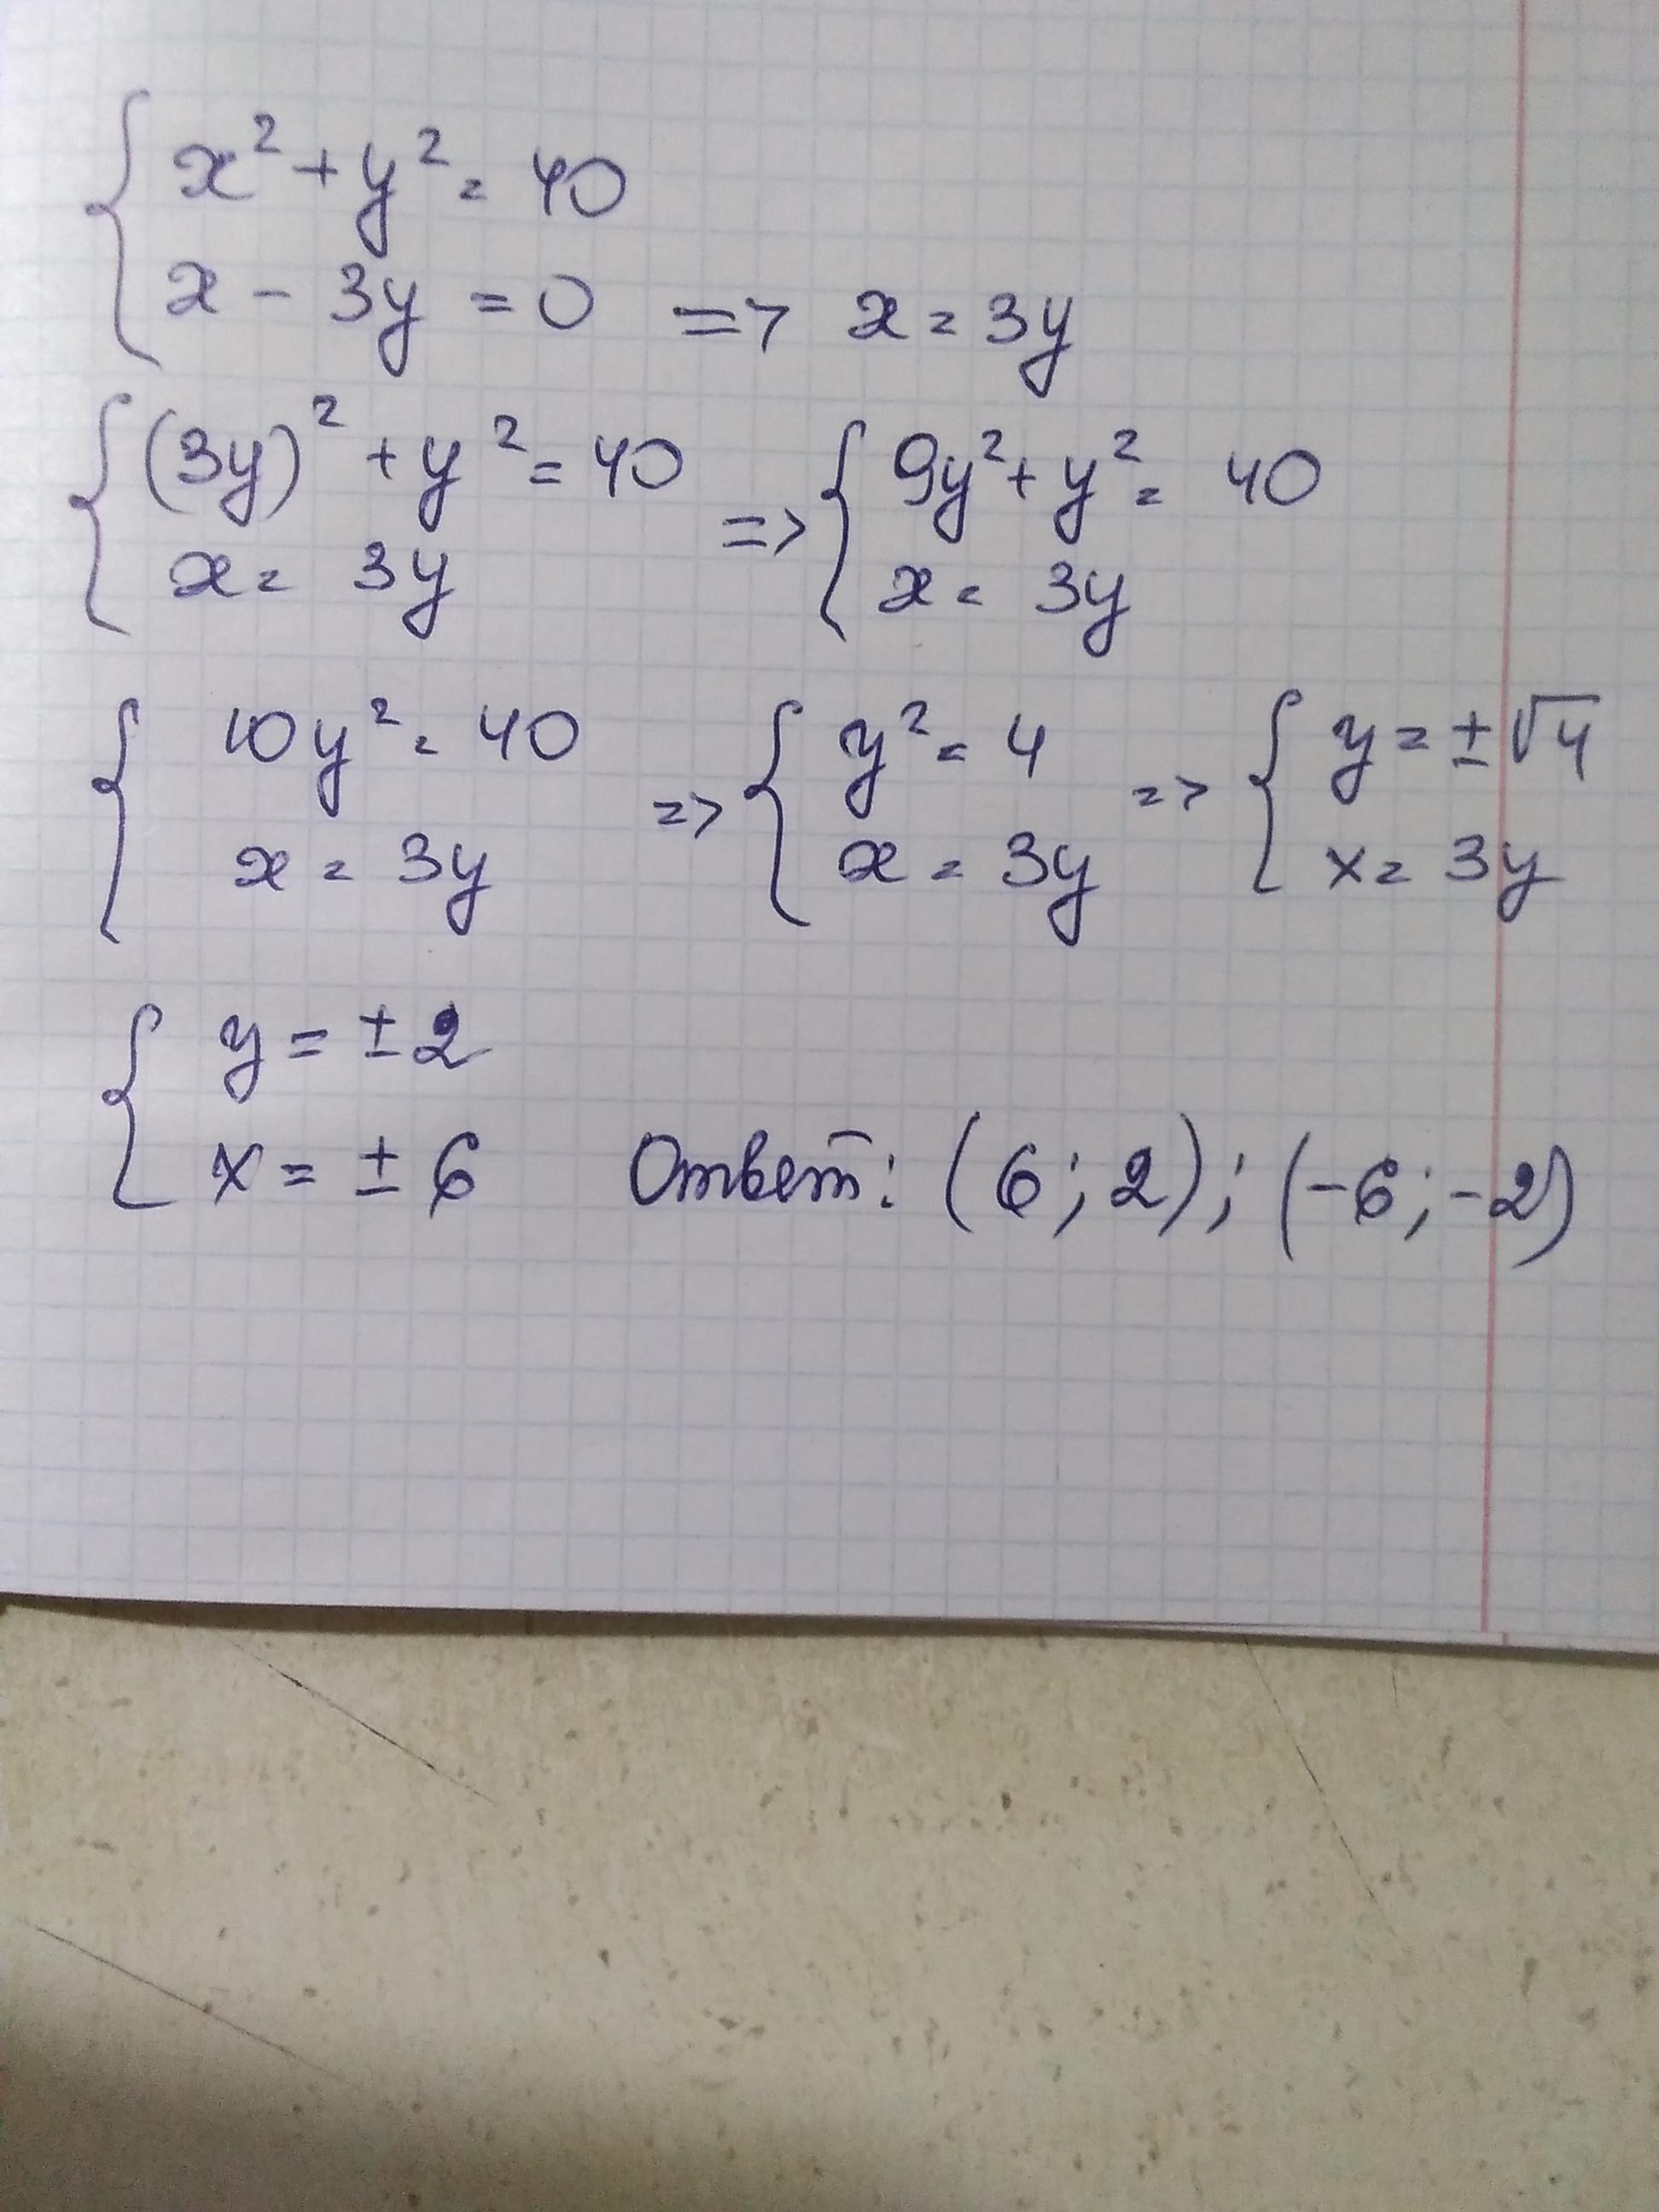 x² + y² = 40
x - 3y = 0 => x = 3y
(3y)² + y² = 40 => 9y² + y² = 40
x = 3y x = 3y
10y² = 40 => y² = 4 => y = ±√4
x = 3y x = 3y x = 3y
y = ±2
x = ±6 Ответ: (6; 2); (-6; -2)